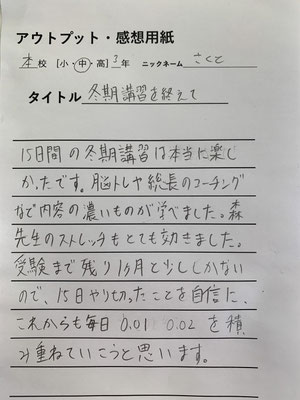 アウトプット・感想用紙
本校 [小・中・高] 3年 ニックネーム さくと
タイトル 冬期講習を終えて
15日間の冬期講習は本当に楽し
かったです。脳トレや総長のコーチング
など内容の濃いものが学べました。森
先生のストレッチもとても効きました。
受験まで残り1ヶ月と少ししかない
ので、15日やり切ったことを自信に、
これからも毎日 0.01 0.02 を積
み重ねていこうと思います。